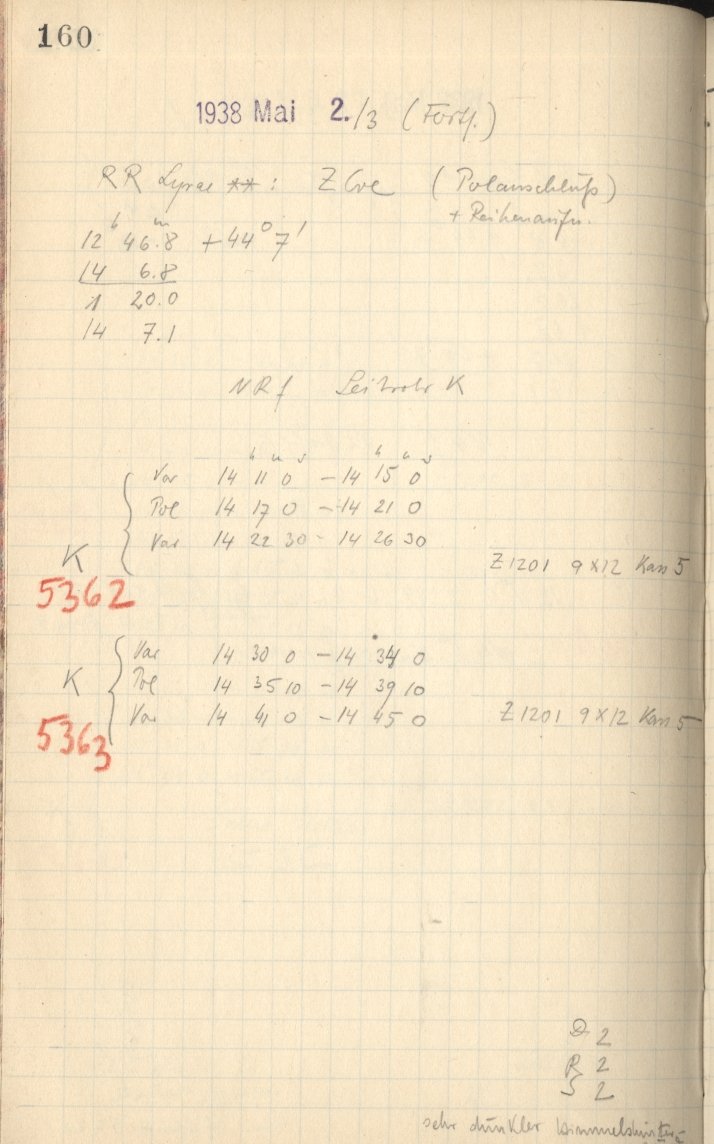 160
1938 Mai 2./3 (Forts.)
RR Lyrae **: Z CVe (Polanschluß)
+ Reihenaufn.
12 h 46.8 m + 44° 7'
14 6.8
1 20.0
14 7.1
NRf Leitrohr K
h m s h m s
Var 14 11 0 – 14 15 0
Pol 14 17 0 – 14 21 0
Var 14 22 30 – 14 26 30
K
5362
Z1201 9×12 Kass 5
Var 14 30 0 – 14 34 0
K Pol 14 35 10 – 14 39 10
Var 14 41 0 – 14 45 0 Z1201 9×12 Kass 5
5363
D 2
R 2
S 2
sehr dunkler Himmelshinter-